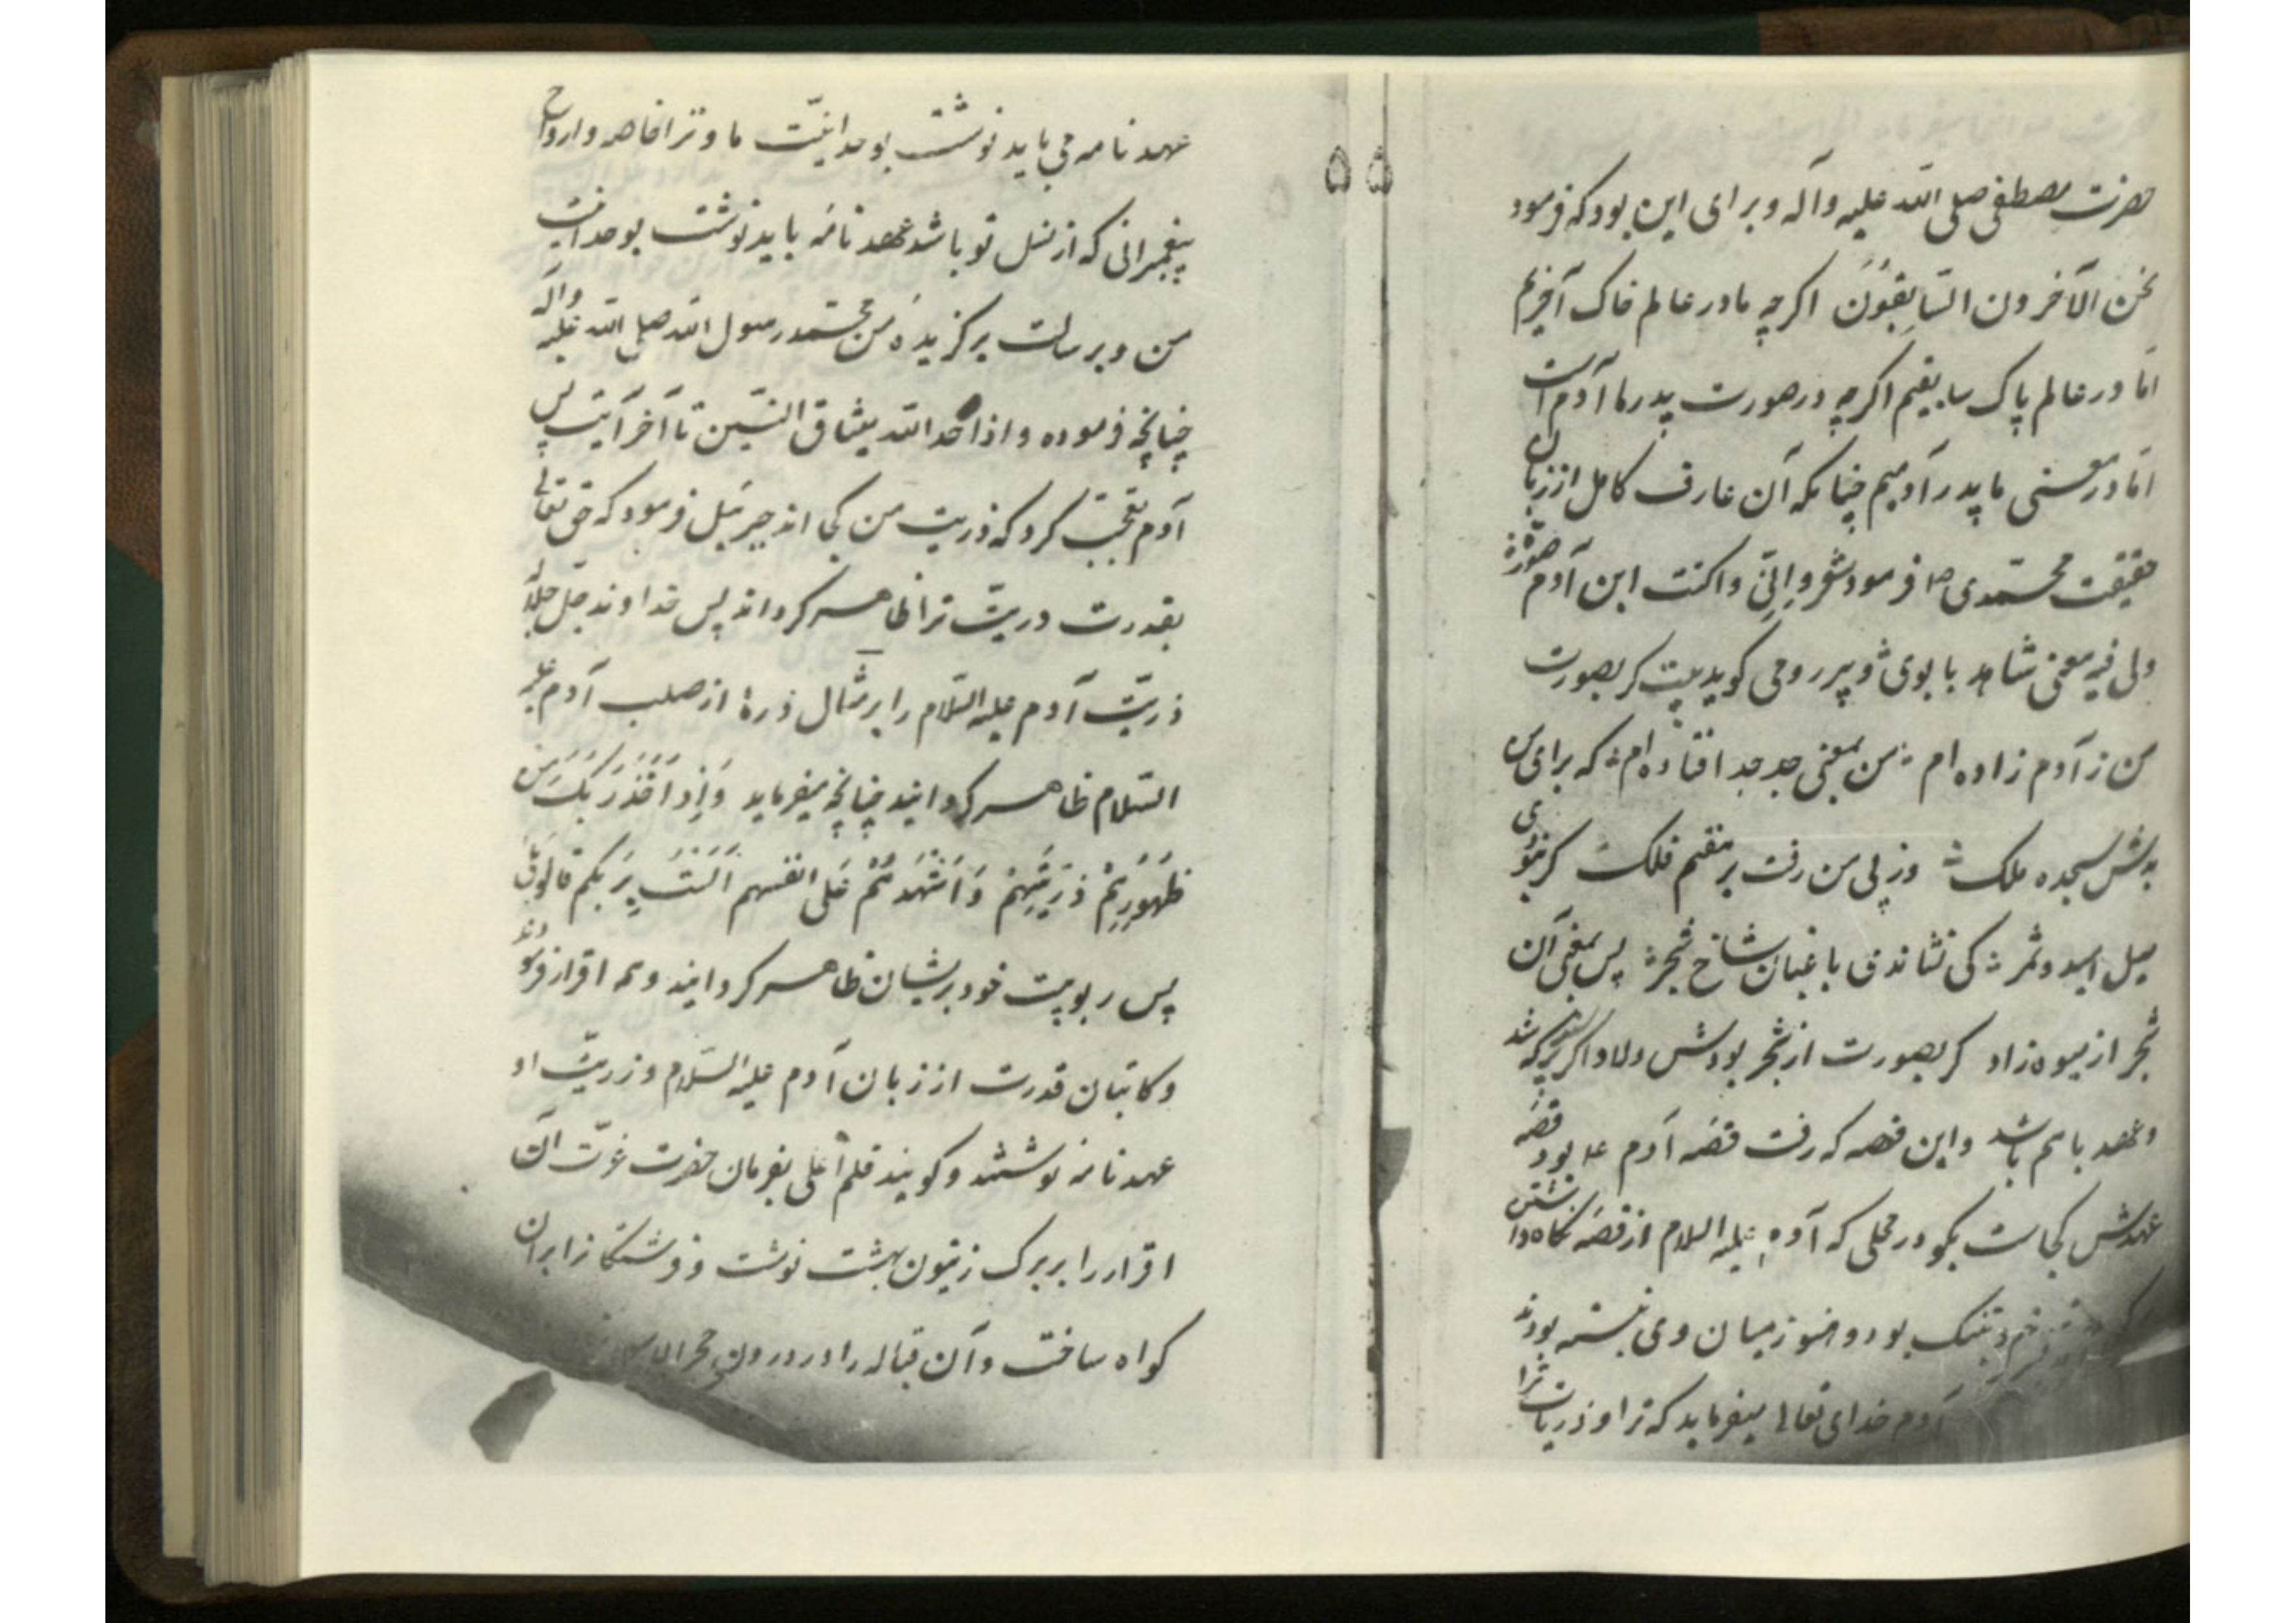 حضرت مصطفی صلی الله علیه وآله وبرای این بود که فرمود
نحن الآخرون السّابِقوُنَ اکرچه ما در عالم خاک آخریم
امّا در عالم پاک سابقیم اکرچه در صورت پدر ما آدم است
امّا در معنی ما پدر آدمیم چنانکه آن عارف کامل از زبان
حقیقت محمّدی ص فرمود شعر وانّی وان کنت ابن آدم صورة
ولی فیه معنی شاهد بابوی و پیر رومی کوید بیت کر بصورت
من ز آدم زاده ام من بمعنی جد جد افتاده ام که برای من
بدش سجده ملک وز پی من رفت بر هفتم فلک کر نبودی
میل امید و ثمر کی نشاندی باغبان شاخ شجر پس بمعنی آن
شجر از میوه زاد کر بصورت از شجر بودش ولاد اکر
وعهد باهم باشد واین قصه که رفت قصّه آدم ع بود قصّه
عهدش کجاست بکو در محلی که آدم علیه السلام از قصّه نکاه داشتن
بود و هنوز میان وی نبسته بودند
آدم خدای تعالی میفرماید که ترا و ذریات ترا
۵۵
عهد نامه می باید نوشت بوحدانیّت ما و ترا خاصه وارواح
پیغمبرانی که از نسل تو باشد عهد نامه باید نوشت بوحدانیت
من وبرسالت برکزیدهٔ من محمّد رسول الله صلی الله علیه وآله
چنانچه فرموده واذ اخذ الله میثاق النبیّین تا آخر آیت پس
آدم تعجّب کرد که ذریت من کجا اند جبرئیل فرمود که حق تعالی
بقدرت ذریّت ترا ظاهر کرداند پس خداوند جلّ جلاله
ذریّت آدم علیه السّلام را بر مثال ذرهٔ از صلب آدم علیه
السّلام ظاهر کردانید چنانچه میفرماید وَاِذ اَخَذَ رَبُّکَ مِن
ظهُورِهِم ذرّیتهم وَاَشْهَدَهُم عَلی انفسهم اَلَسْتُ بِرَبکم قالوا بَلی
پس ربوبیت خود بریشان ظاهر کردانید وهمه اقرار فرمودند
وکاتبان قدرت از زبان آدم علیه السّلام وذریّت او
عهد نامه نوشتند وکویند قلم اعلی بفرمان حضرت عزّت آن
اقرار را بر برک زیتون بهشت نوشت وفرشتکانرا بران
کواه ساخت وآن قباله را در درون حجر الاسود